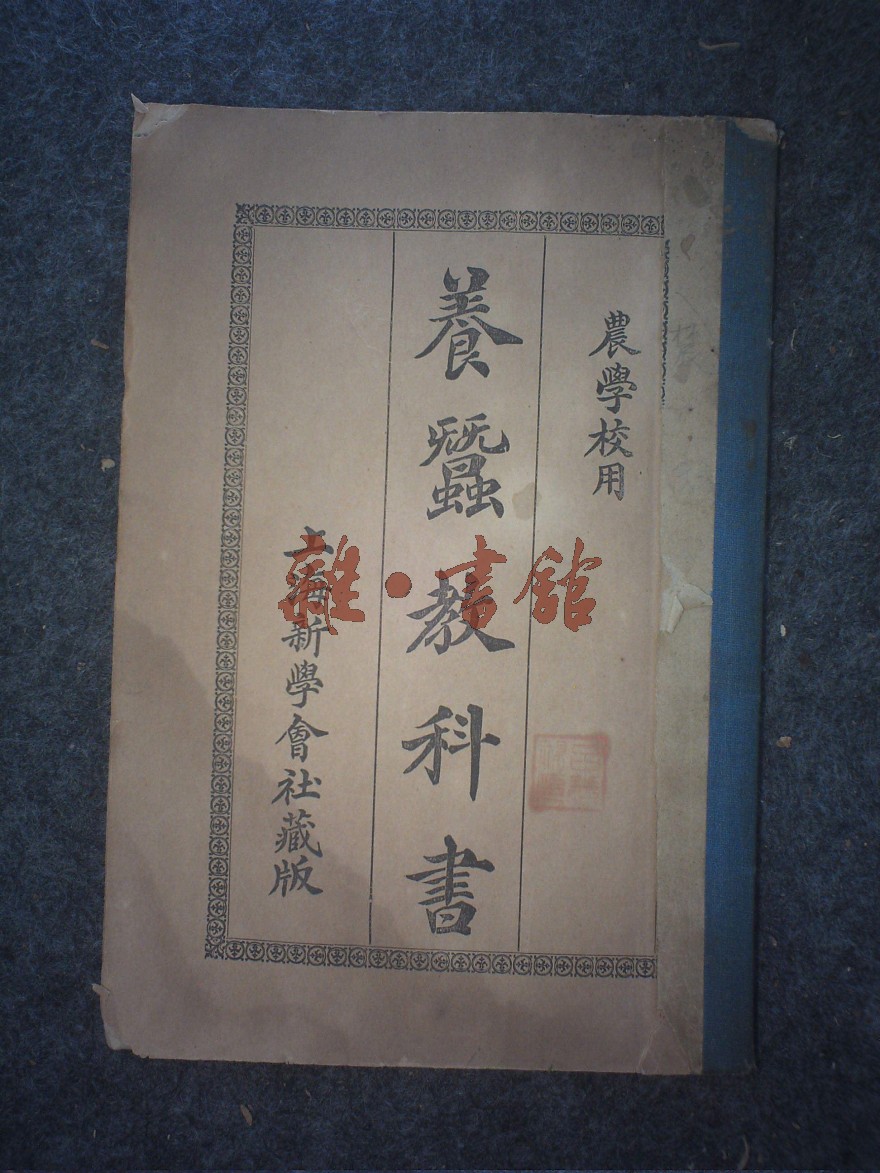 農學校用
養蠶教科書
上海新學會社藏版
雜·書館